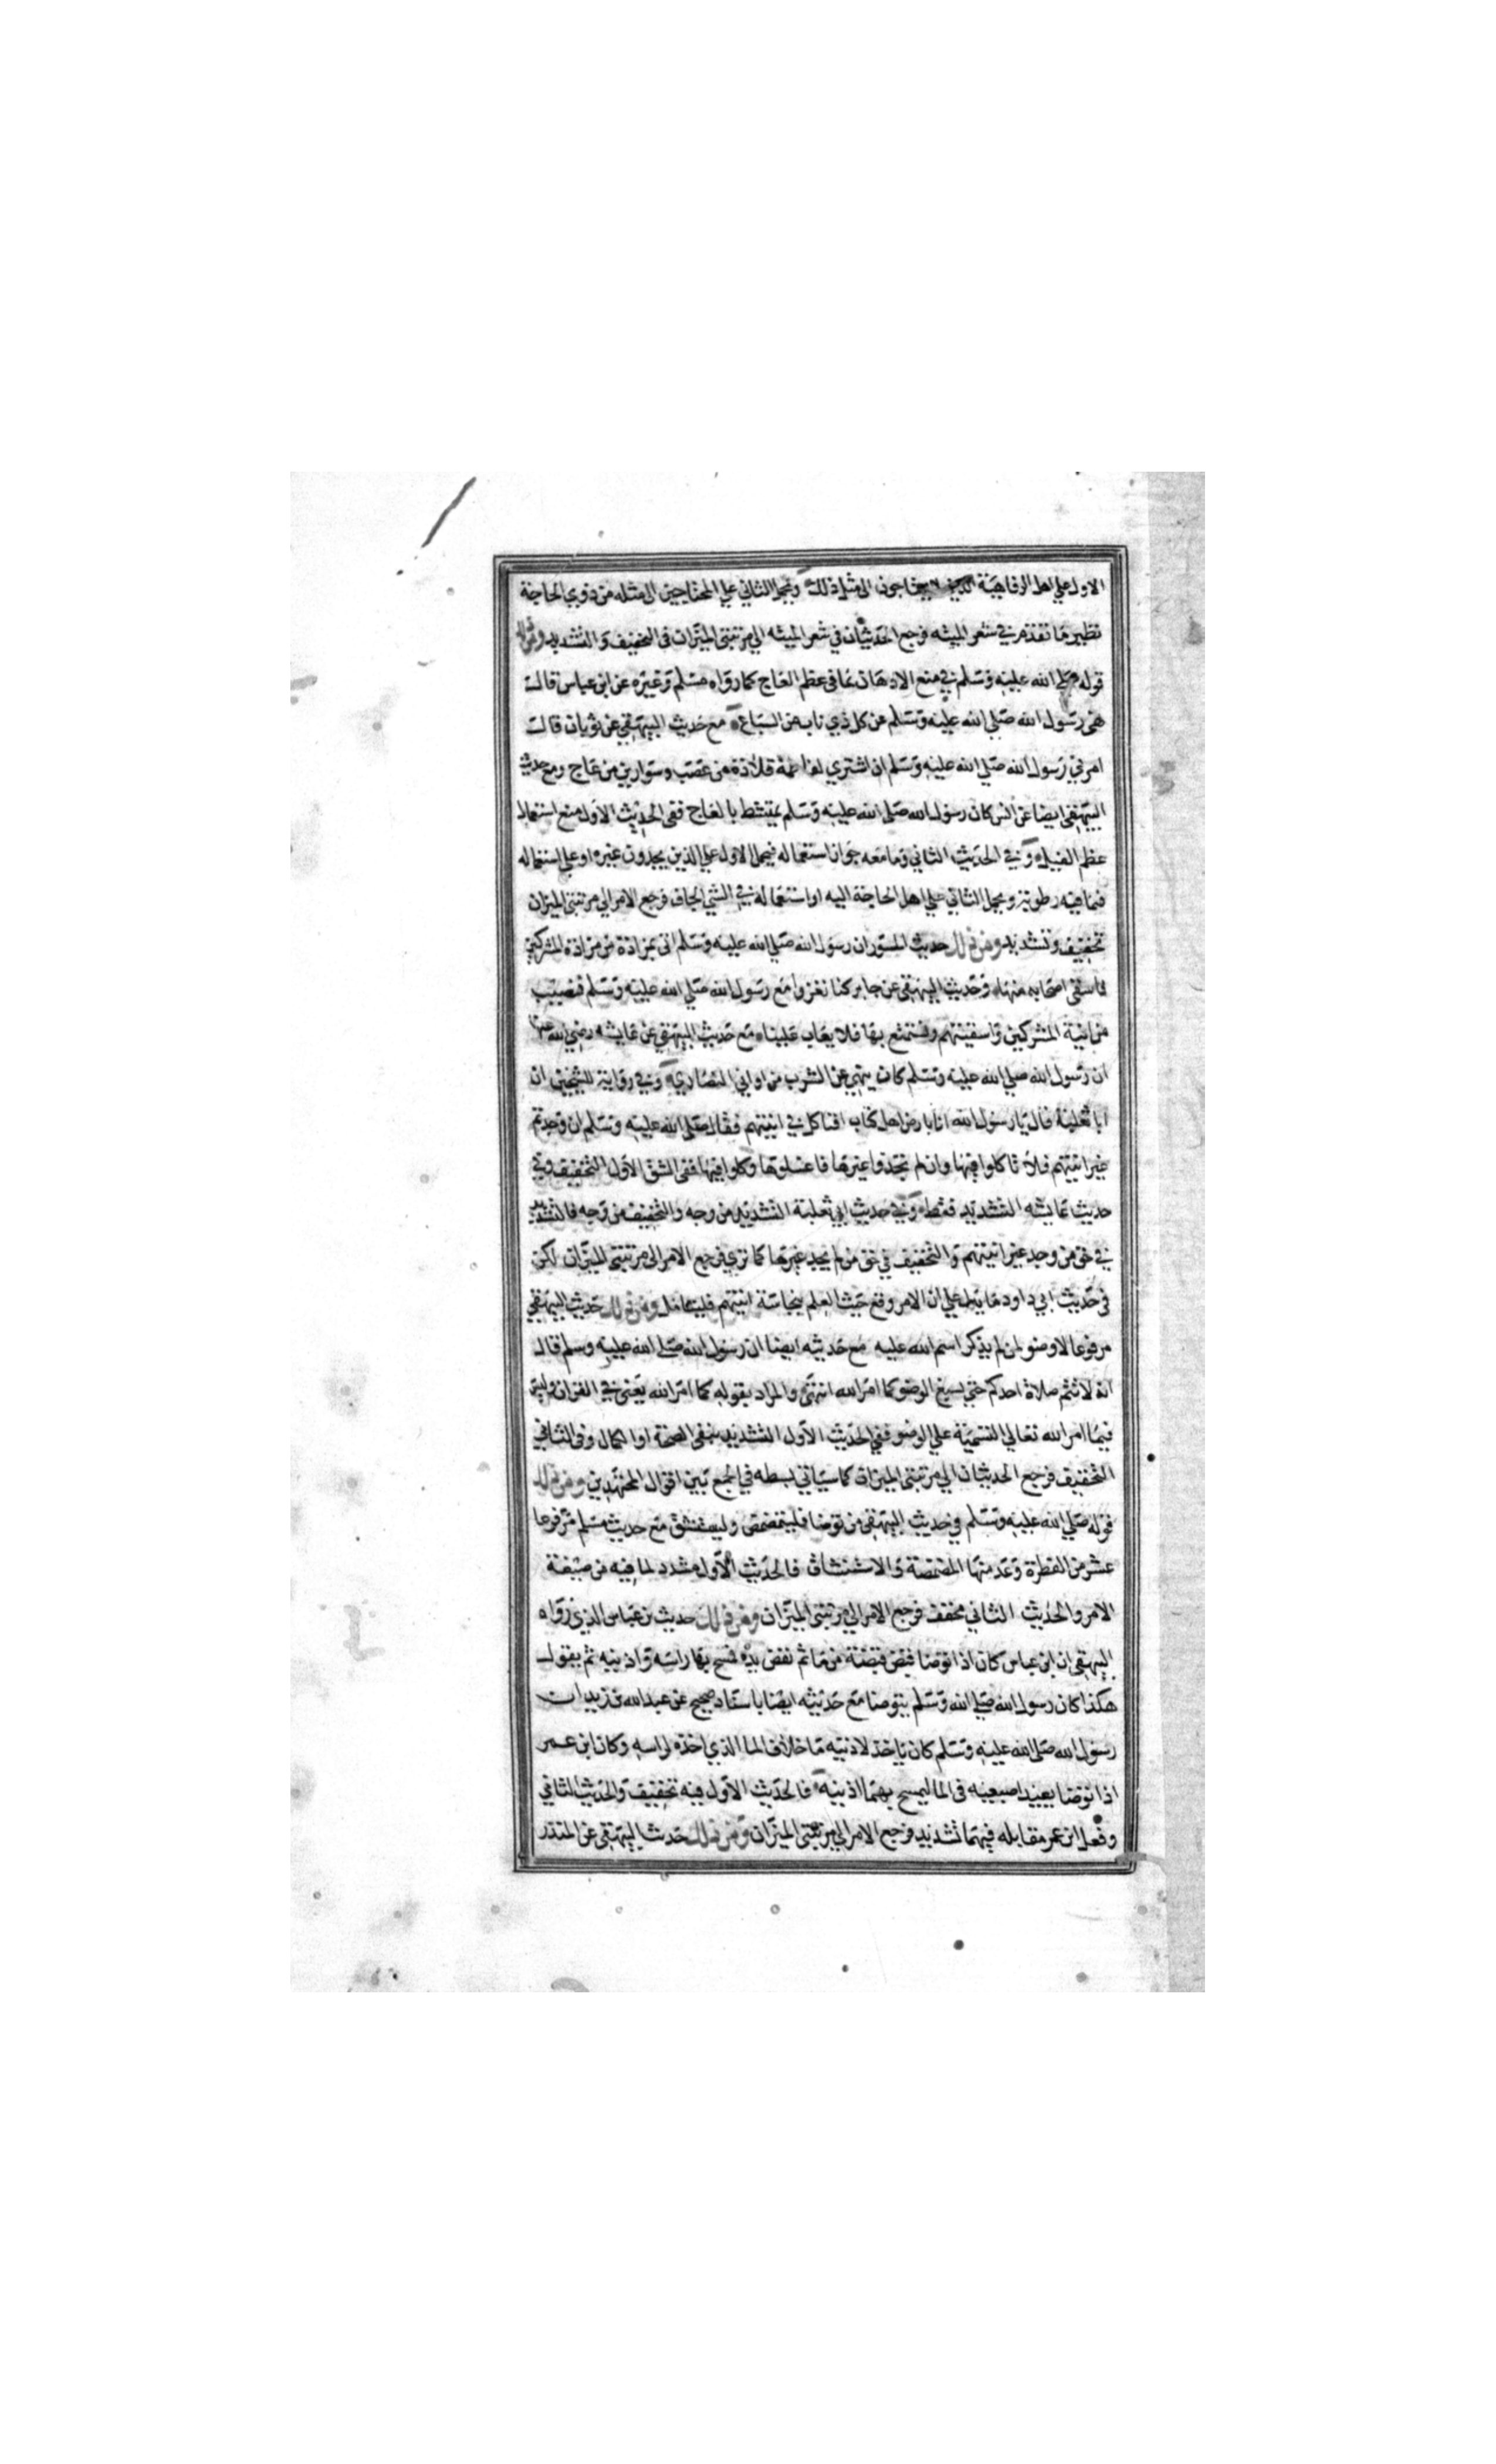 الاول علي اهل الرفاهية الذين لا يحتاجون الي مثل ذلك ويحمل الثاني علي المحتاجين الي مثله من ذوي الحاجة
نظير ما تقدم في شعر الميته فرجع الحديثان في شعر الميته الي مرتبتي الميزان في التخفيف والتشديد ومن ذلك
قوله صلي الله عليه وسلم في منع الادهان بما في عظم العاج كما رواه مسلم وغيره عن ابن عباس قالت
نهي رسول الله صلي الله عليه وسلم عن كل ذي ناب من السباع مع حديث البيهقي عن ثوبان قالت
امرني رسول الله صلي الله عليه وسلم ان اشتري لفاطمة قلادة من عصب وسوارين من عاج ومع حديث
البيهقي ايضا عن انس كان رسول الله صلي الله عليه وسلم يمتشط بالعاج ففي الحديث الاول منع استعمال
عظم الفيل وفي الحديث الثاني وما معه جواز استعماله فيحمل الاول علي الذين يجدون غيره او علي استعماله
فيما فيه رطوبة ويحمل الثاني علي اهل الحاجة اليه او استعماله في الشي الجاف فرجع الامر الي مرتبتي الميزان
تخفيف وتشديد ومن ذلك حديث المسور ان رسول الله صلي الله عليه وسلم اتي بمزادة من مزادة المشركين
فاسقي اصحابه منها وحديث البيهقي عن جابر كنا نغزوا مع رسول الله صلي الله عليه وسلم فنصيب
من انية المشركين واسقيتهم ونستمتع بها فلا يعاب علينا مع حديث البيهقي عن عايشه رضي الله عنها
ان رسول الله صلي الله عليه وسلم كان ينهي عن الشرب من اواني النصاري وفي رواية للشيخين ان
ابا ثعلبة قال يا رسول الله انا بارض اهل كتاب افناكل في انيتهم فقال صلي الله عليه وسلم ان وجدتم
غير انيتهم فلا تاكلوا فيها وان لم تجدوا غيرها فاغسلوها وكلوا فيها ففي الشق الاول التخفيف وفي
حديث عايشه التشديد فقط وفي حديث ابي ثعلبة التشديد من وجه والتخفيف من وجه فالتشديد
في حق من وجد غير انيتهم والتخفيف في حق من لم يجد غيرها كما تري فرجع الامر الي مرتبتي الميزان لكن
في حديث ابي داود ما يدل علي ان الامر وقع حيث العلم بنجاسة انيتهم فليتامل ومن ذلك حديث البيهقي
مرفوعا لا وضو لمن لم يذكر اسم الله عليه مع حديثه ايضا ان رسول الله صلي الله عليه وسلم قال
انه لا تتم صلاة احدكم حتي يسبغ الوضو كما امر الله انتهي والمراد بقوله كما امر الله يعني في القران وليس
فيما امر الله تعالي التسمية علي الوضو ففي الحديث الاول التشديد بنفي الصحة او الكمال وفي الثاني
التخفيف فرجع الحديثان الي مرتبتي الميزان كما سياتي بسطه في الجمع بين اقوال المجتهدين ومن ذلك
قوله صلي الله عليه وسلم في حديث البيهقي من توضا فليتمضمض وليستنشق مع حديث مسلم مرفوعا
عشر من الفطرة وعد منها المضمضة والاستنشاق فالحديث الاول مشدد لما فيه من صيغة
الامر والحديث الثاني مخفف فرجع الامر الي مرتبتي الميزان ومن ذلك حديث بن عباس الذي رواه
البيهقي ان ابن عباس كان اذا توضا قبض قبضة من ما ثم نفض يده فمسح بها راسه واذنيه ثم يقول
هكذا كان رسول الله صلي الله وسلم يتوضا مع حديثه ايضا باسناد صحيح عن عبد الله بن زيد ان
رسول الله صلي الله عليه وسلم كان ياخذ لاذنيه ما خلاف الما الذي اخذه لراسه وكان ابن عمر
اذا توضا يعيد اصبعيه في الما ليمسح بهما اذنيه فالحديث الاول فيه تخفيف والحديث الثاني
وفعل ابن عمر مقابله فيهما تشديد فرجع الامر الي مرتبتي الميزان ومن ذلك حديث البيهقي عن المنذر